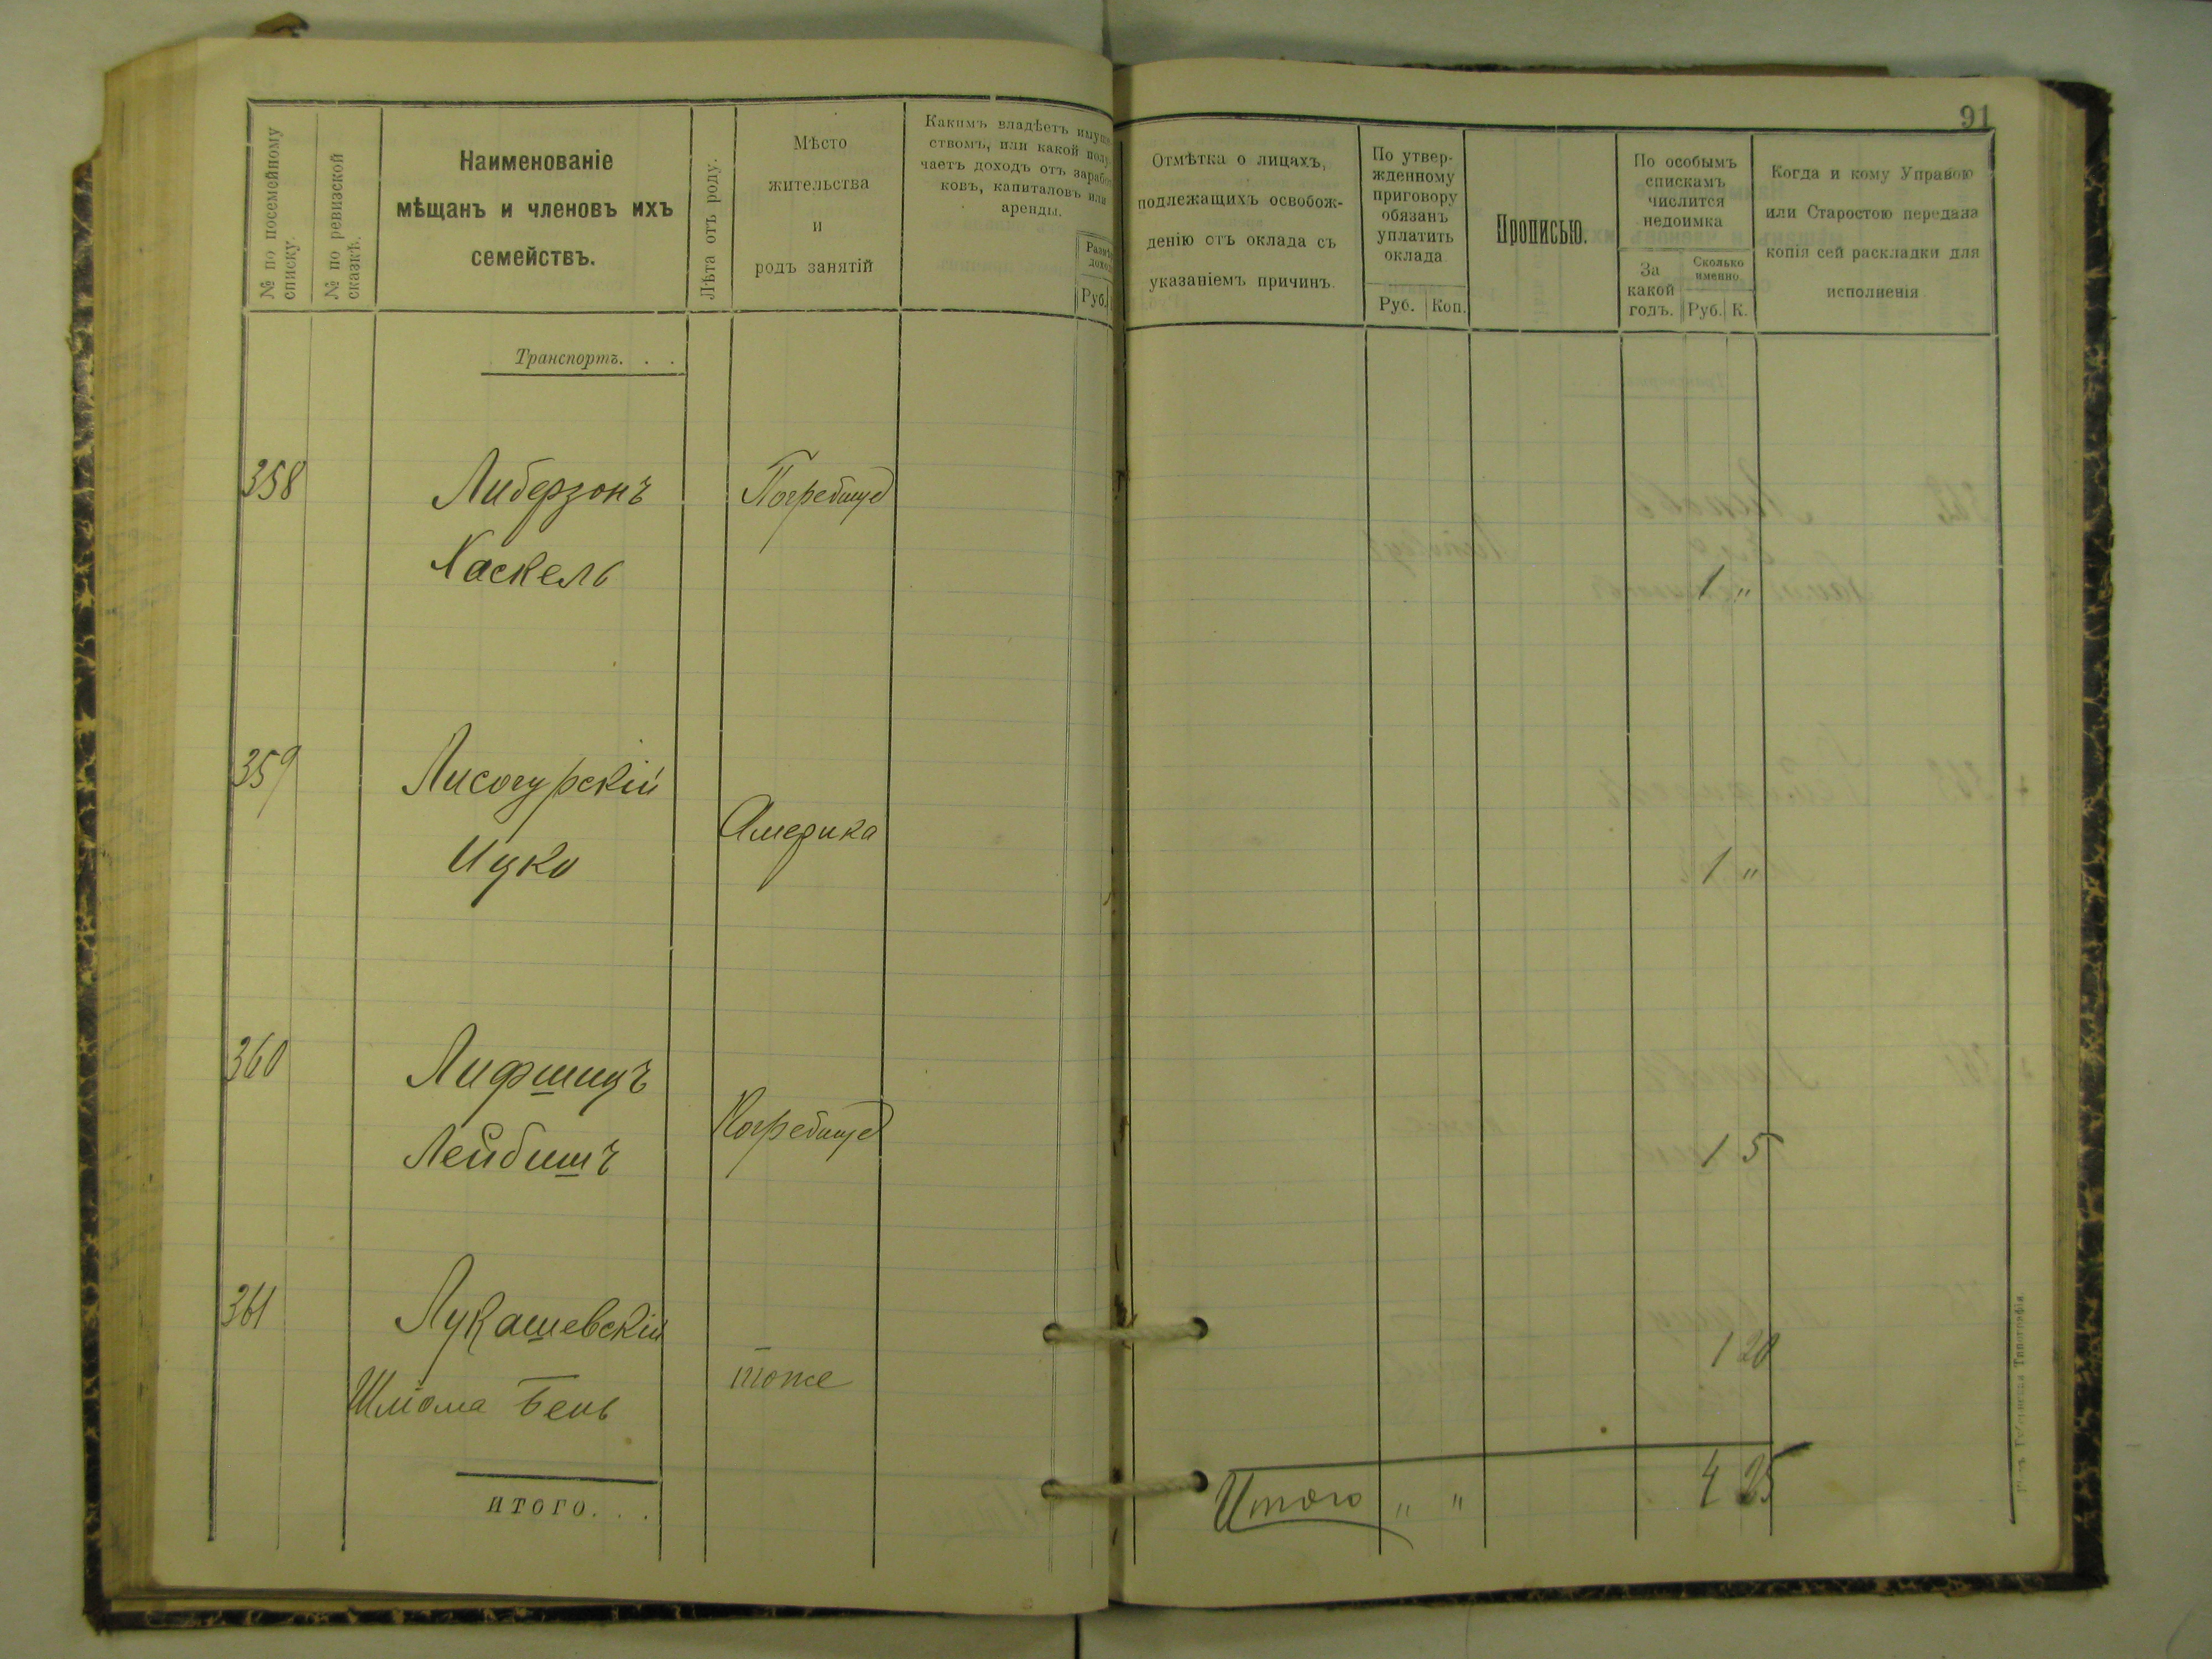 91
№ по посемейному списку.
№ по ревизской сказкѣ.
Наименованіе
мѣщанъ и членовъ ихъ
семействъ.
Лѣта отъ роду.
Мѣсто
жительства
и
родъ занятій
Какимъ владѣетъ
ствомъ, или какой
чаетъ доходъ отъ
ковъ, капиталовъ или
аренды.
Руб.
Отмѣтка о лицахъ,
подлежащихъ освобож-
денію отъ оклада съ
указаніемъ причинъ.
По утвер-
жденному
приговору
обязанъ
уплатить
оклада
Руб. Коп.
Прописью.
По особымъ
спискамъ
числится
недоимка
За
какой
годъ.
Сколько
именно.
Руб. К.
Когда и кому Управою
или Старостою передана
копія сей раскладки для
исполненія
Транспортъ. . .
358 Либерзонъ Погребище
Хаскель 1 "
359 Лисогурскій
Америка
Ицко 1 "
360 Лифшицъ
Погребище
Лейбишъ 1 5
361 Лукашевскій 1 20
Шліома Бень тоже
итого. . .
Итого " " 4 25